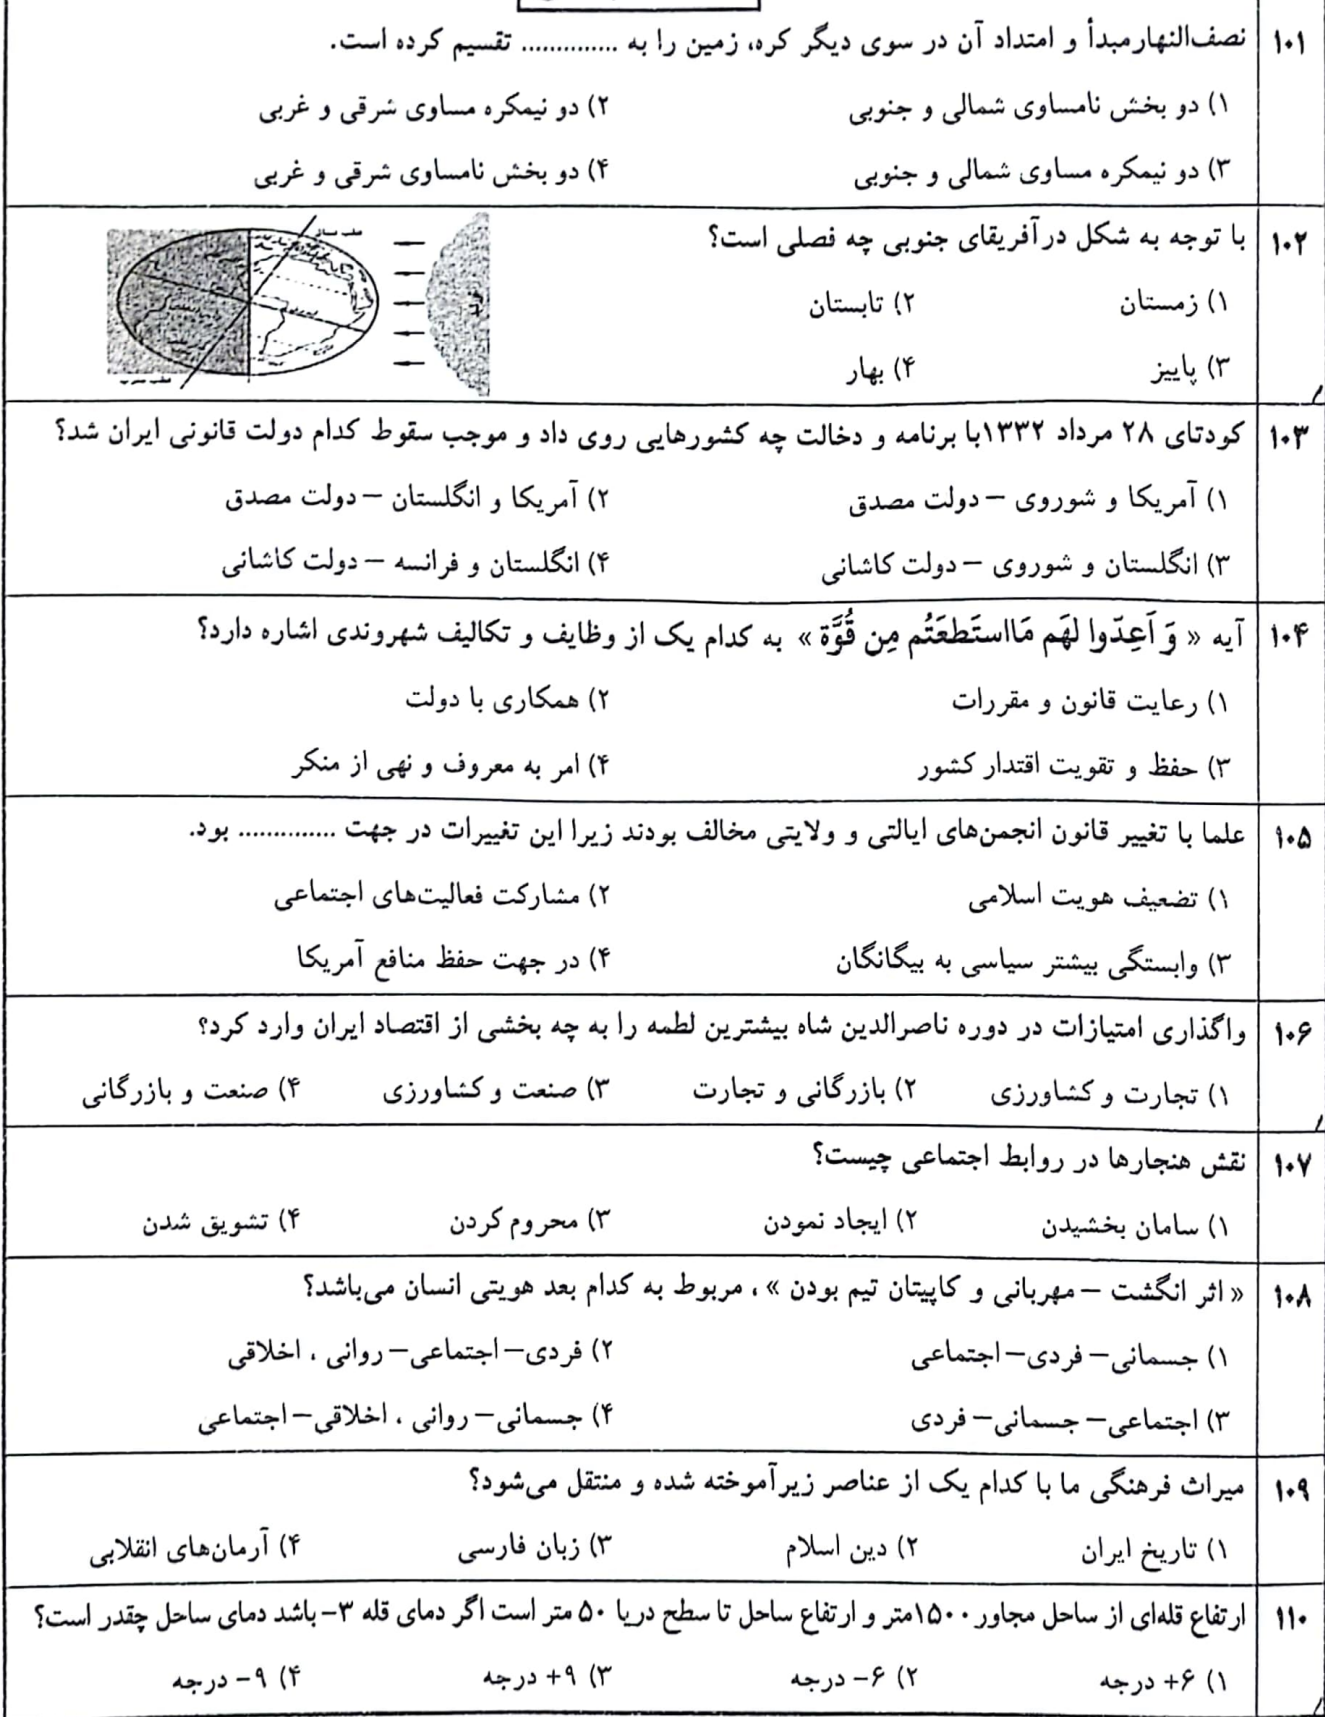 ۱۰۱ نصف‌النهارمبدأ و امتداد آن در سوی دیگر کره، زمین را به .............. تقسیم کرده است.
۱) دو بخش نامساوی شمالی و جنوبی ۲) دو نیمکره مساوی شرقی و غربی
۳) دو نیمکره مساوی شمالی و جنوبی ۴) دو بخش نامساوی شرقی و غربی
۱۰۲ با توجه به شکل در آفریقای جنوبی چه فصلی است؟
۱) زمستان ۲) تابستان
۳) پاییز ۴) بهار
۱۰۳ کودتای ۲۸ مرداد ۱۳۳۲با برنامه و دخالت چه کشورهایی روی داد و موجب سقوط کدام دولت قانونی ایران شد؟
۱) آمریکا و شوروی – دولت مصدق ۲) آمریکا و انگلستان – دولت مصدق
۳) انگلستان و شوروی – دولت کاشانی ۴) انگلستان و فرانسه – دولت کاشانی
۱۰۴ آیه « وَ اَعِدّوا لَهُم مَااستَطَعتُم مِن قُوَّة » به کدام یک از وظایف و تکالیف شهروندی اشاره دارد؟
۱) رعایت قانون و مقررات ۲) همکاری با دولت
۳) حفظ و تقویت اقتدار کشور ۴) امر به معروف و نهی از منکر
۱۰۵ علما با تغییر قانون انجمن‌های ایالتی و ولایتی مخالف بودند زیرا این تغییرات در جهت .............. بود.
۱) تضعیف هویت اسلامی ۲) مشارکت فعالیت‌های اجتماعی
۳) وابستگی بیشتر سیاسی به بیگانگان ۴) در جهت حفظ منافع آمریکا
۱۰۶ واگذاری امتیازات در دوره ناصرالدین شاه بیشترین لطمه را به چه بخشی از اقتصاد ایران وارد کرد؟
۱) تجارت و کشاورزی ۲) بازرگانی و تجارت ۳) صنعت و کشاورزی ۴) صنعت و بازرگانی
۱۰۷ نقش هنجارها در روابط اجتماعی چیست؟
۱) سامان بخشیدن ۲) ایجاد نمودن ۳) محروم کردن ۴) تشویق شدن
۱۰۸ « اثر انگشت – مهربانی و کاپیتان تیم بودن » ، مربوط به کدام بعد هویتی انسان می‌باشد؟
۱) جسمانی– فردی– اجتماعی ۲) فردی– اجتماعی– روانی ، اخلاقی
۳) اجتماعی– جسمانی– فردی ۴) جسمانی– روانی ، اخلاقی– اجتماعی
۱۰۹ میراث فرهنگی ما با کدام یک از عناصر زیر آموخته شده و منتقل می‌شود؟
۱) تاریخ ایران ۲) دین اسلام ۳) زبان فارسی ۴) آرمان‌های انقلابی
۱۱۰ ارتفاع قله‌ای از ساحل مجاور ۱۵۰۰متر و ارتفاع ساحل تا سطح دریا ۵۰ متر است اگر دمای قله ۳– باشد دمای ساحل چقدر است؟
۱) ۶+ درجه ۲) ۶– درجه ۳) ۹+ درجه ۴) ۹– درجه